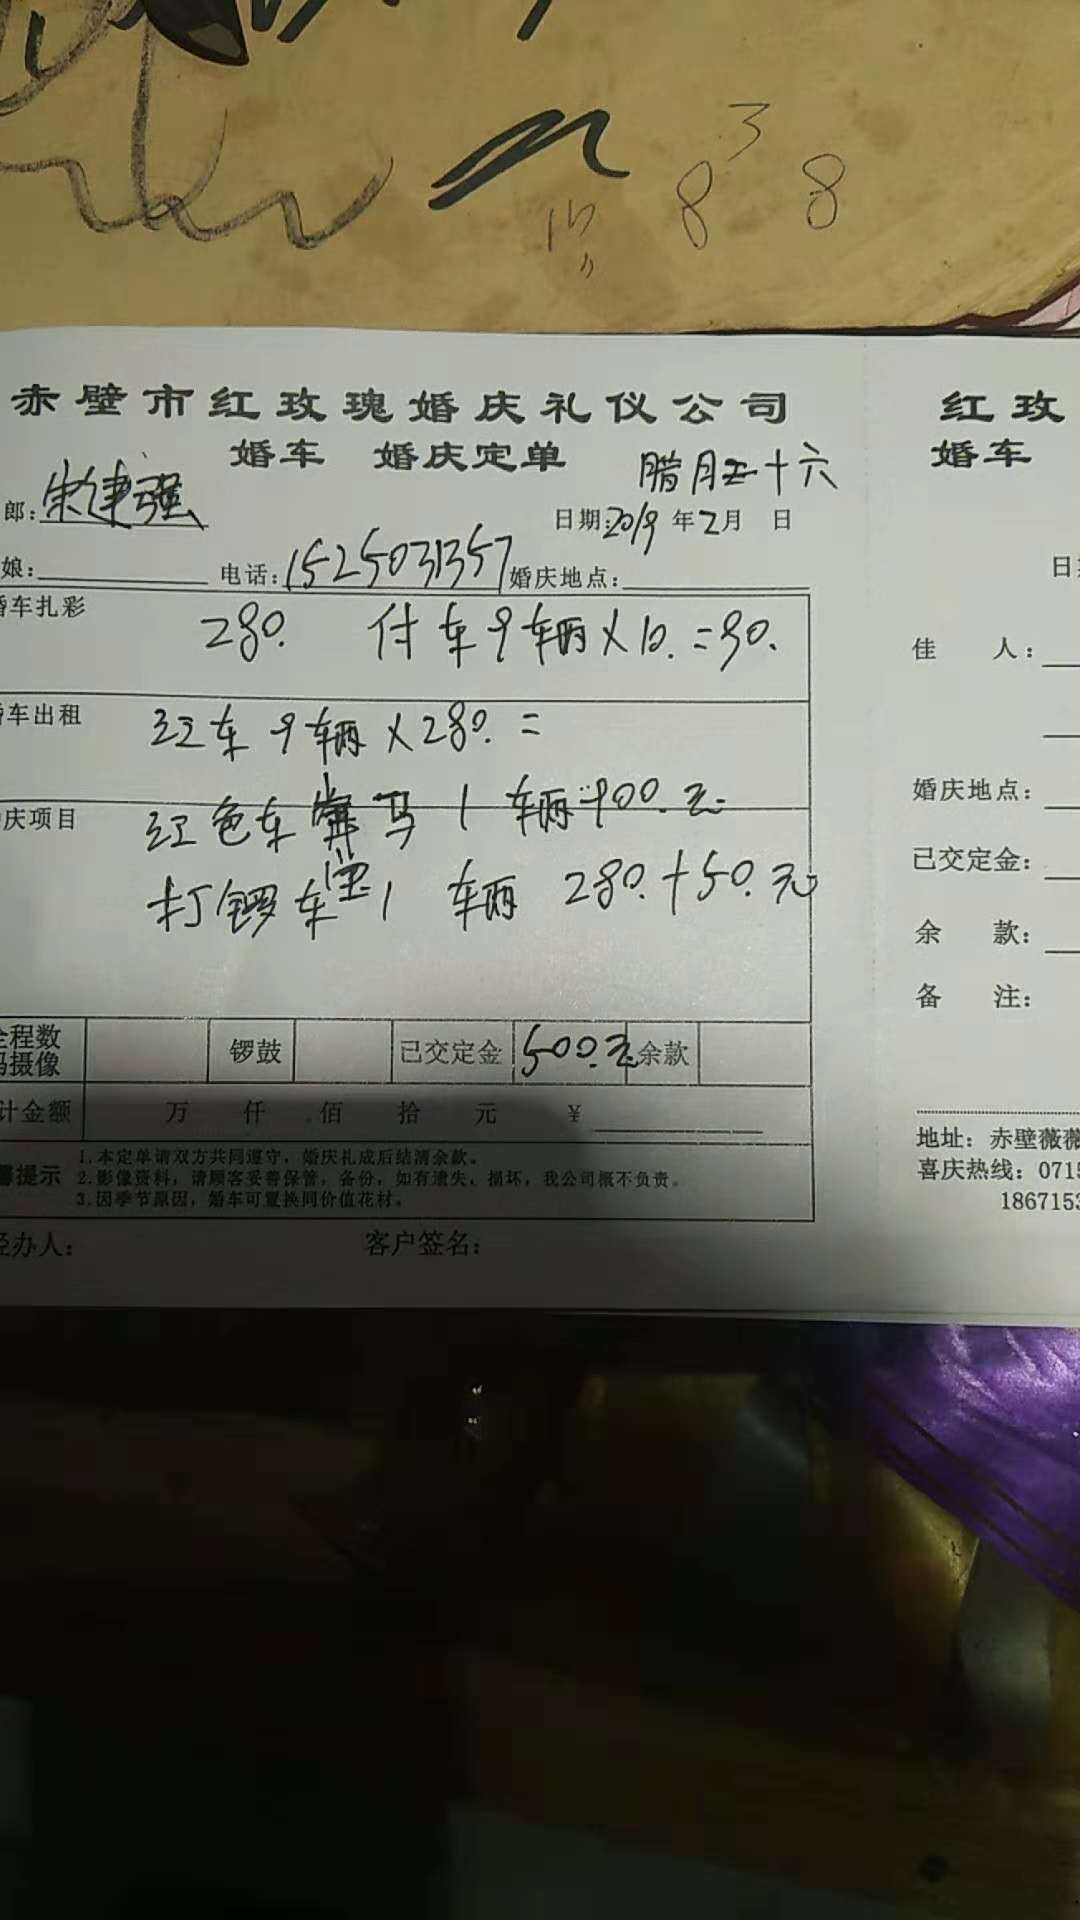 3
8 8
赤壁市红玫瑰婚庆礼仪公司
婚车 婚庆定单
腊月二十六
郎: 朱建强
日期: 2019年2月 日
娘: 电话: 1525031357 婚庆地点:
婚车扎彩 280. 付车9辆×10.=90.
车出租 红车9辆×280.=
庆项目 红色车 马1辆 900.元
打锣车 1辆 280.+50.元
全程数
码摄像 锣鼓 已交定金 500.元 余款
计金额 万 仟 佰 拾 元 ¥
馨提示
1.本定单请双方共同遵守，婚庆礼成后结清余款。
2.影像资料，请顾客妥善保管，备份，如有遗失、损坏，我公司概不负责。
3.因季节原因，婚车可置换同价值花材。
经办人: 客户签名:
红玫
婚车
日
佳 人:
婚庆地点:
已交定金:
余 款:
备 注:
地址: 赤壁薇薇
喜庆热线: 0715
1867153